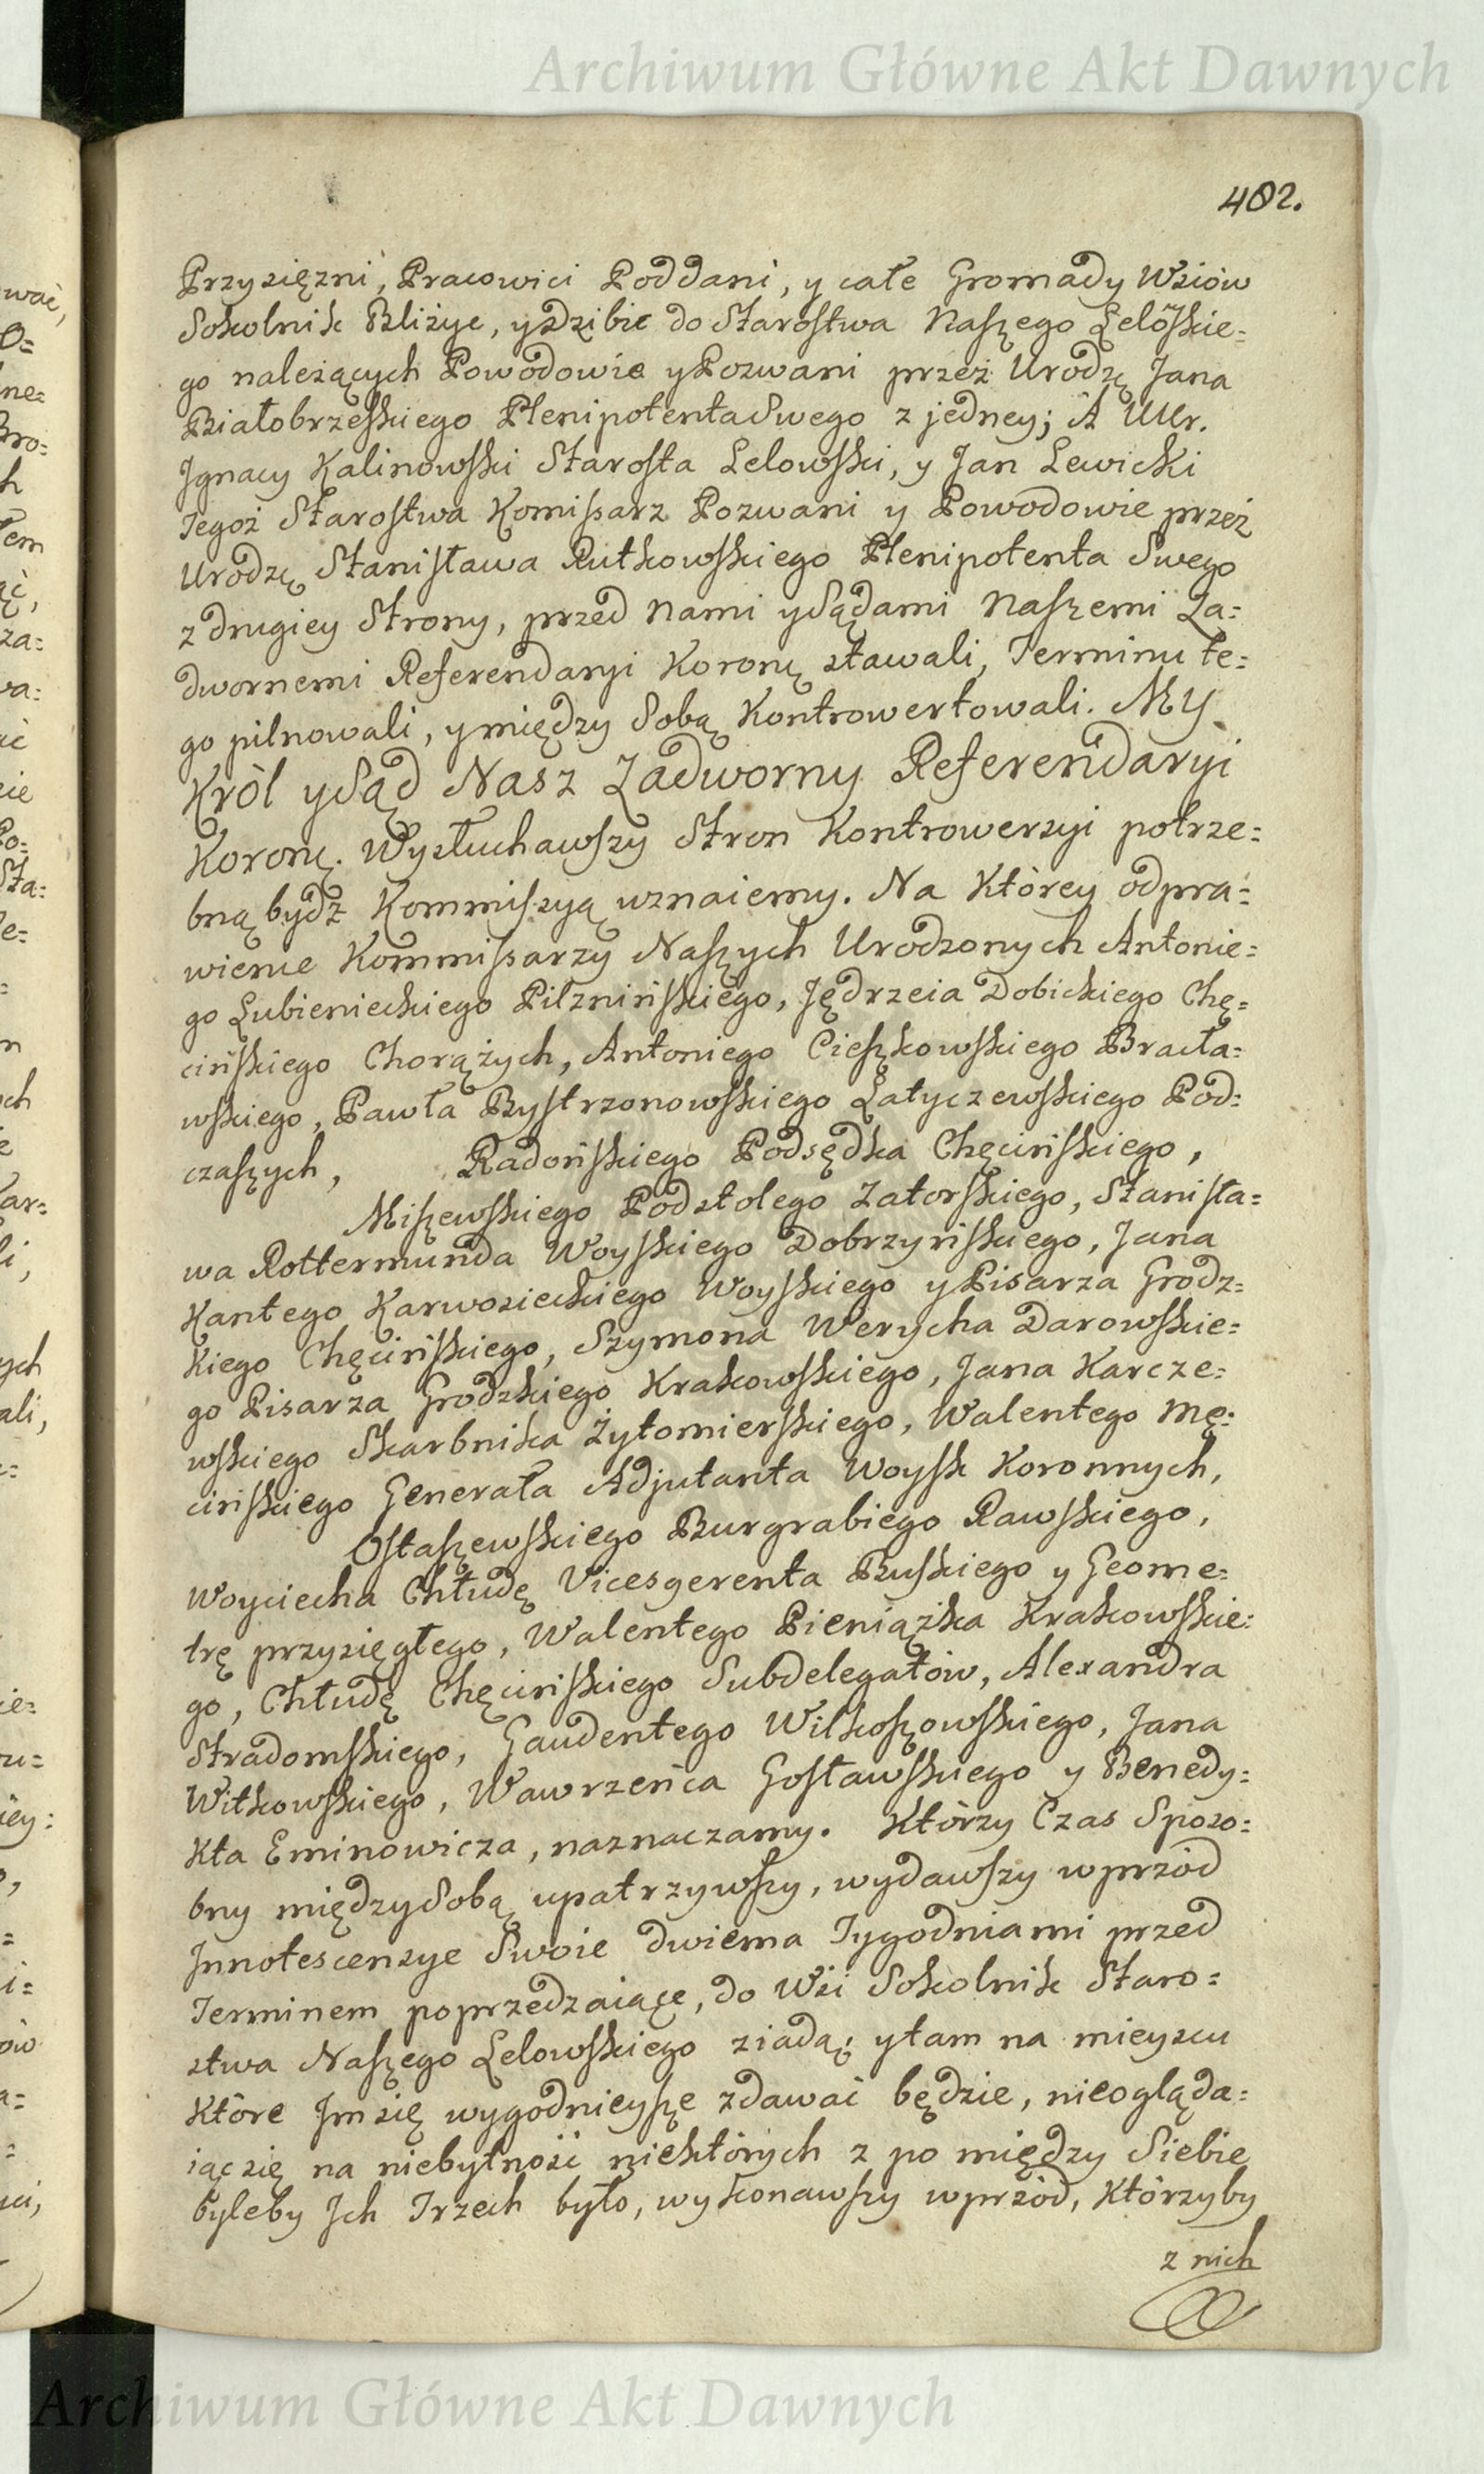 Archiwum Główne Akt Dawnych
402.
Przysięzni, Pracowici Poddani, y całe Gromady Wsiów
Sokolnik Bliżyc, y Dzibic do Starostwa Naszego Lelowskie=
go należących Powodowie y Pozwani przez Urodzę Jana
Białobrzeskiego Plenipotenta Swego z jedney; A Ur.
Ignacy Kalinowski Starosta Lelowski, y Jan Lewicki
Tegoż Starostwa Komissarz Pozwani y Powodowie przez
Urodzę Stanisława Rutkowskiego Plenipotenta Swego
z drugiey Strony, przed Nami y Sądami Naszemi Za=
dwornemi Referendaryi Koronę stawali, Terminu te=
go pilnowali, y między Sobą Kontrowertowali. My
Król y Sąd Nasz Zadworny Referendaryi
Koronę. Wysłuchawszy Stron Kontrowersyi potrze=
bną bydź Kommissyą uznaiemy. Na Którey odpra=
wienie Kommissarzy Naszych Urodzonych Antonie=
go Lubienieckiego Pilznińskiego, Jędrzeia Dobickiego Chę=
cińskiego Chorążych, Antoniego Cieszkowskiego Bracła=
wskiego, Pawła Bystrzonowskiego Latyczewskiego Pod=
czaszych, Radońskiego Podsędka Chęcińskiego,
Miszewskiego Podstolego Zatorskiego, Stanisła=
wa Rottermunda Woyskiego Dobrzyńskiego, Jana
Kantego Karwosieckiego Woyskiego y Pisarza Grodz=
Kiego Chęcińskiego, Szymona Werycha Darowskie=
go Pisarza Grodzkiego Krakowskiego, Jana Karcze=
wskiego Skarbnika Żytomierskiego, Walentego Mę=
cińskiego Generała Adjutanta Woysk Koronnych,
Ostaszewskiego Burgrabiego Rawskiego,
Woyciecha Chłudę Vicesgerenta Buskiego y Geome=
trę przysięgłego, Walentego Pieniążka Krakowskie=
go, Chłudę Chęcińskiego Subdelegatów, Alexandra
Stradomskiego, Gaudentego Wilkoszowskiego, Jana
Witkowskiego, Wawrzeńca Gosławskiego y Benedy=
Kta Eminowicza, naznaczamy. Którzy Czas Sposo=
bny między Sobą upatrzywszy, wydawszy wprzód
Innotescensye Swoie dwiema Tygodniami przed
Terminem poprzedzaiące, do Wsi Sokolnik Staro=
stwa Naszego Lelowskiego ziadą; y tam na mieyscu
Które Im się wygodnieysze zdawać będzie, nieogląda=
iąc się na niebytność niektórych z po między Siebie
byleby Ich Trzech było, wykonawszy wprzód, Którzyby
z nich
Archiwum Główne Akt Dawnych